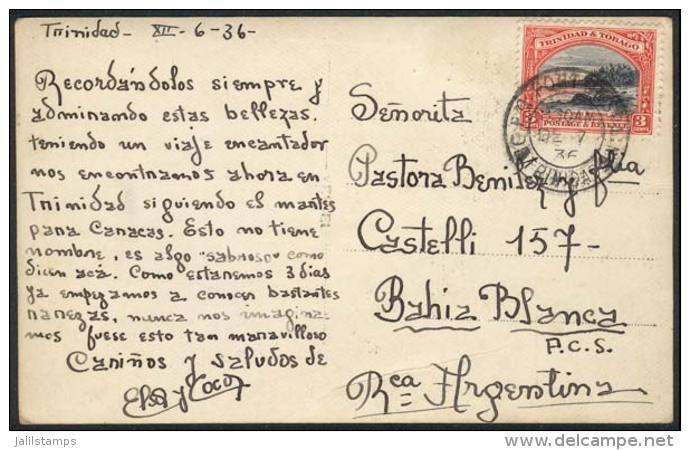 Trinidad- XII-6-36-
Recordándolos siempre y
adminando estas bellezas.
teniendo un viaje encantador
nos encontramos ahora en
Trinidad siguiendo el mantes
para Caracas. Esto no tiene
nombre, es algo "sabroso" como
dicen acá. Como estaremos 3 días
ya empezamos a conocer bastantes
rarezas, nunca nos imagina-
mos fuese esto tan maravilloso
Cariños y saludos de
Elsa y Coco
TRINIDAD & TOBAGO
3 CENTS
POSTAGE & REVENUE
36
TRINIDAD
Señorita
Pastora Benitez y flia
Castelli 157-
Bahia Blanca
F.C.S.
Rca Argentina
jalilstamps
www.delcampe.net